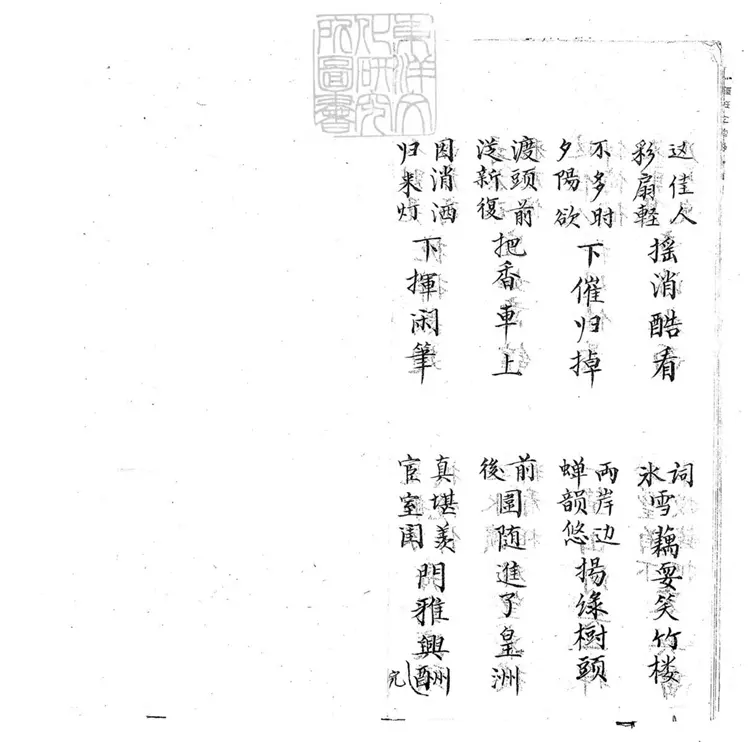 東洋文化研究所圖書
这佳人彩扇輕摇消酷看
詞氷雪藕耍笑竹楼
不多时夕陽欲下催归掉
兩岸边蝉韻悠揚绿樹頭
渡頭前從新復把香車上
前後围随進了皇洲
因消洒归来灯下揮闲筆
真堪羡宦室闺門雅興酬
完